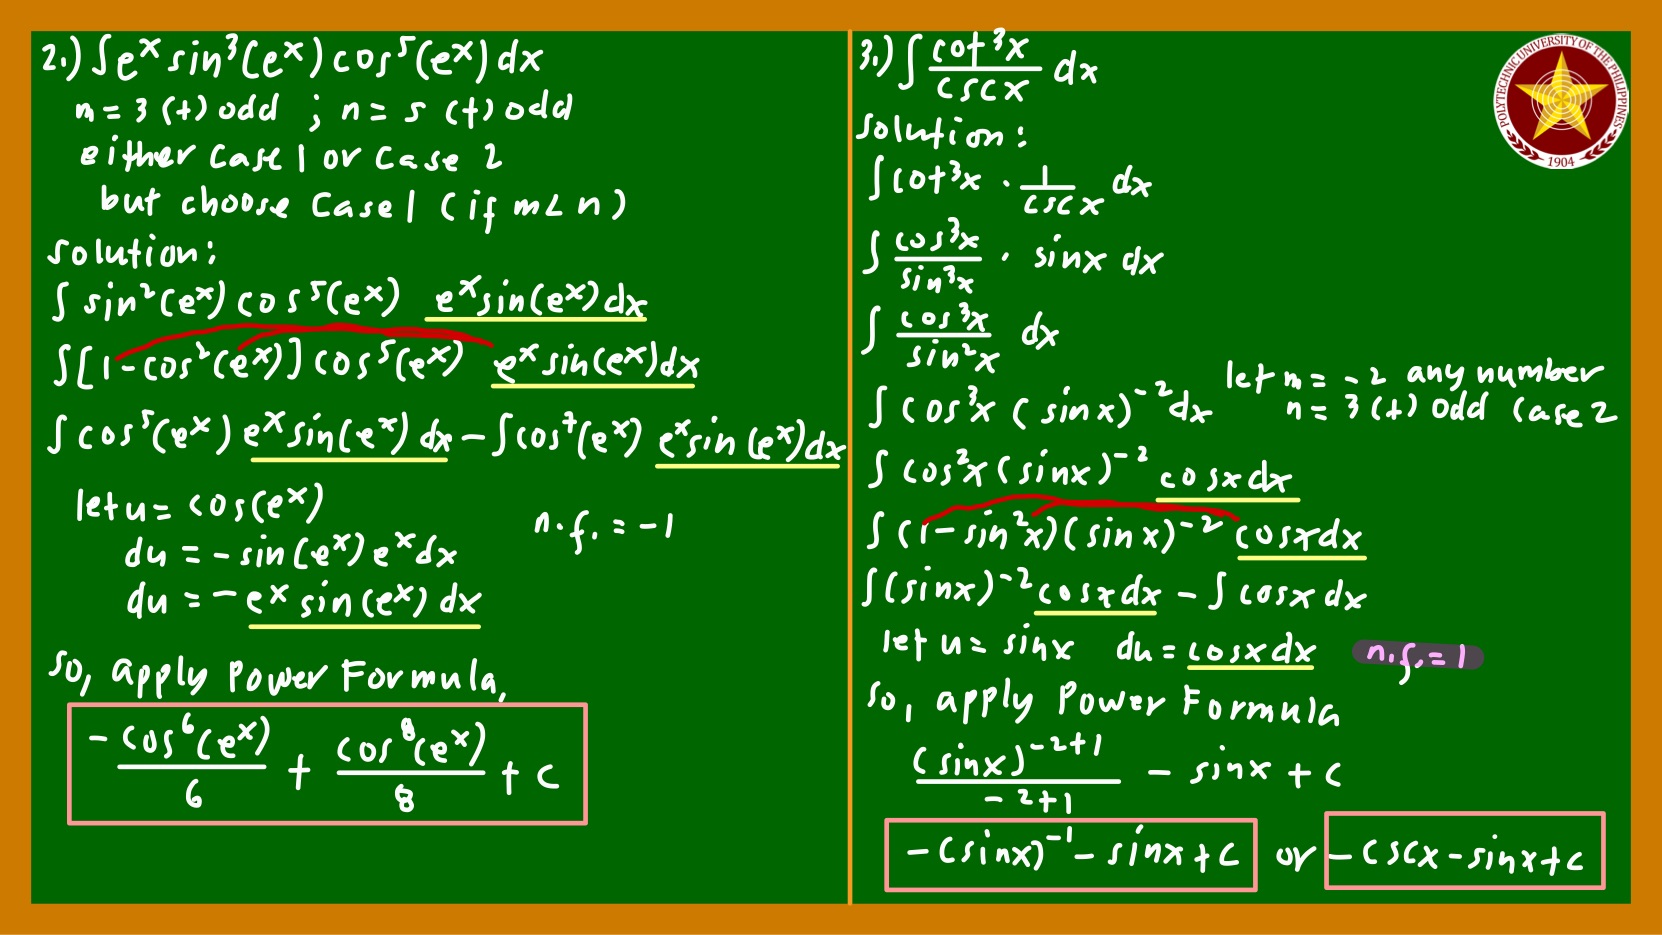 2.) ∫e^x sin³(e^x) cos⁵(e^x) dx
m = 3 (+) odd ; n = 5 (+) odd
either Case 1 or Case 2
but choose Case 1 (if m < n)
solution:
∫ sin²(e^x) cos⁵(e^x) e^x sin(e^x) dx
∫[1 - cos²(e^x)] cos⁵(e^x) e^x sin(e^x) dx
∫ cos⁵(e^x) e^x sin(e^x) dx - ∫cos⁷(e^x) e^x sin(e^x) dx
let u = cos(e^x)
n.f. = -1
du = -sin(e^x) e^x dx
du = -e^x sin(e^x) dx
so, apply Power Formula,
-cos⁶(e^x)/6 + cos⁸(e^x)/8 + c
3.) ∫ cot³x/cscx dx
solution:
∫cot³x · 1/cscx dx
∫ cos³x/sin³x · sinx dx
∫ cos³x/sin²x dx
∫ cos³x (sinx)^-2 dx
let m = -2 any number
n = 3 (+) odd Case 2
∫ cos²x (sinx)^-2 cosx dx
∫ (1 - sin²x)(sinx)^-2 cosx dx
∫(sinx)^-2 cosx dx - ∫ cosx dx
let u = sinx du = cosx dx n.f. = 1
so, apply Power Formula
(sinx)^-2+1/-2+1 - sinx + c
-(sinx)^-1 - sinx + c or -cscx - sinx + c
POLYTECHNIC UNIVERSITY OF THE PHILIPPINES
1904